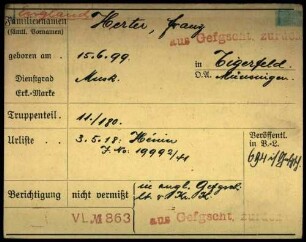 England
Familiennamen
(sämtl. Vornamen)
Herter, Franz
aus Gefgscht. zurück
geboren am 15.6.99. in Tigerfeld.
O.A. Münsingen.
Dienstgrad Musk.
Erk.-Marke
Truppenteil. 11./180.
Urliste 3.5.18: Hénin
J. No: 19992/H
Veröffentl. in V.-L.
Berichtigung nicht vermißt in engl. Gefgsch.
VL M 863 aus Gefgscht. zurück